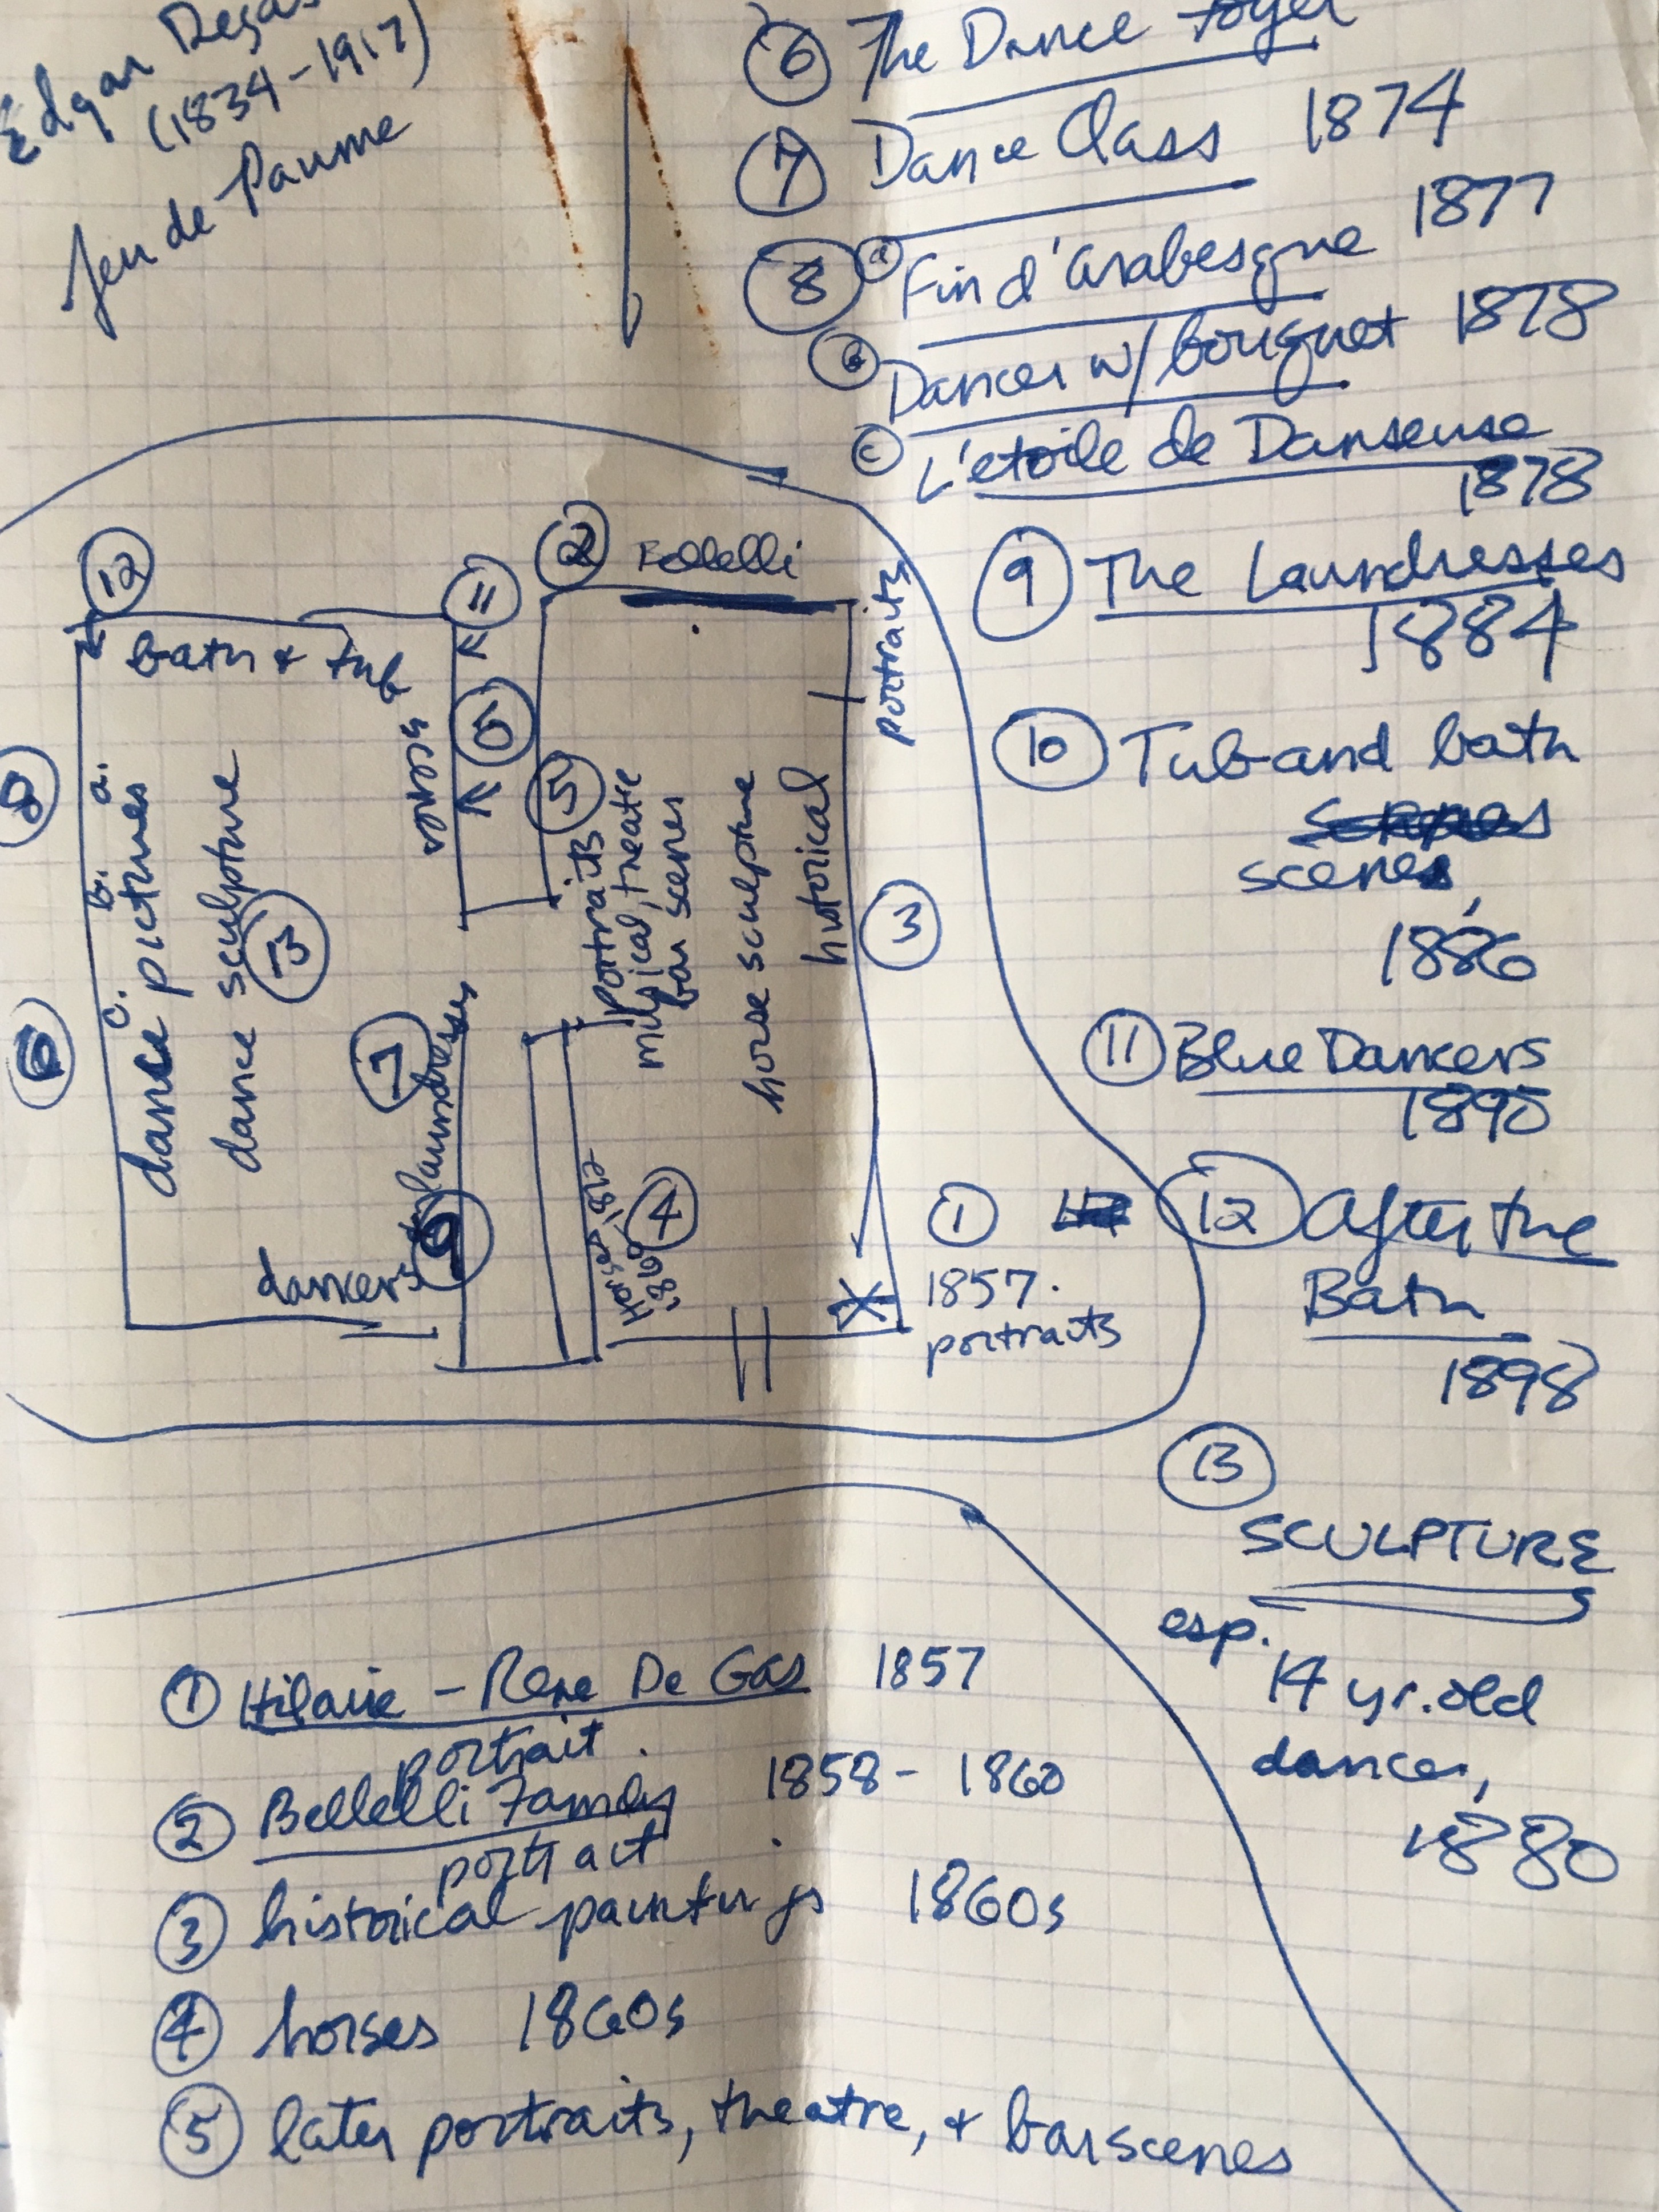 Edgar Degas
(1834-1917)
Jeu de Paume
⑥ The Dance Foyer
⑦ Dance Class 1874
⑧ ⓐ Fin d'arabesque 1877
ⓑ Dancer w/ bouquet 1878
ⓒ L'etoile de Danseuse
1878
⑨ The Laundresses
1884
⑩ Tub and bath
scenes,
1886
⑪ Blue Dancers
1890
⑫ After the
Bath
1898
⑬
SCULPTURE
esp.
14 yr. old
dancer,
1880
⑫
⑪
② Bellelli
portraits
bath & tub
scenes
⑧
a.
b.
c.
dance pictures
dance sculpture
⑬
⑥
⑦
laundresses
⑨
dancers
⑤
portraits
musical, theatre
bar scenes
horse sculpture
historical
③
Horses
1860s, 1872
④
X
①
1857.
portraits
① Hilaire-Rene De Gas 1857
portrait.
② Bellelli Family 1858-1860
portrait
③ historical paintings 1860s
④ horses 1860s
⑤ later portraits, theatre, & bar scenes